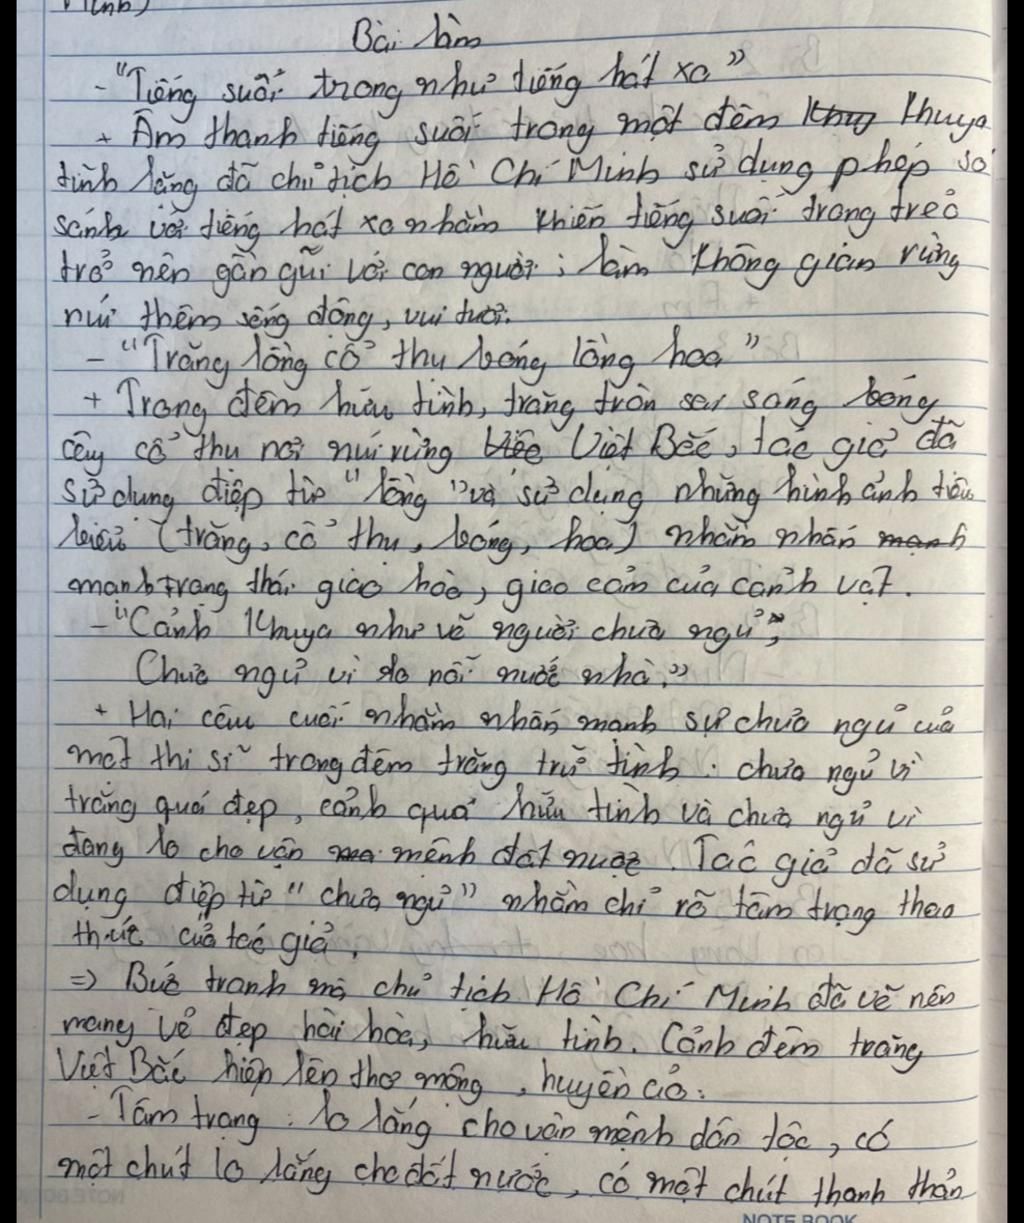 Bài làm
- "Tiếng suối trong như tiếng hát xa"
+ Âm thanh tiếng suối trong một đêm khuya
tĩnh lặng đã chủ tịch Hồ Chí Minh sử dụng phép so
sánh với tiếng hát xa nhằm khiến tiếng suối trong trẻo
trở nên gần gũi với con người; làm không gian rừng
núi thêm sống động, vui tươi.
- "Trăng lồng cổ thụ bóng lồng hoa"
+ Trong đêm hữu tình, trăng tròn soi sáng bóng
cây cổ thụ nơi núi rừng Việt Bắc, tác giả đã
sử dụng điệp từ "lồng" và sử dụng những hình ảnh tiêu
biểu (trăng, cổ thụ, bóng, hoa) nhằm nhấn
mạnh trạng thái giao hòa, giao cảm của cảnh vật.
- "Cảnh khuya như vẽ người chưa ngủ",
Chưa ngủ vì lo nỗi nước nhà."
+ Hai câu cuối nhằm nhấn mạnh sự chưa ngủ của
một thi sĩ trong đêm trăng trữ tình: chưa ngủ vì
trăng quá đẹp, cảnh quá hữu tình và chưa ngủ vì
đang lo cho vận mệnh đất nước. Tác giả đã sử
dụng điệp từ "chưa ngủ" nhằm chỉ rõ tâm trạng thao
thức của tác giả.
=> Bức tranh mà chủ tịch Hồ Chí Minh đã vẽ nên
mang vẻ đẹp hài hòa, hữu tình. Cảnh đêm trăng
Việt Bắc hiện lên thơ mộng, huyền ảo.
- Tâm trạng: lo lắng cho vận mệnh dân tộc, có
một chút lo lắng cho đất nước, có một chút thanh thản
NOTE BOOK